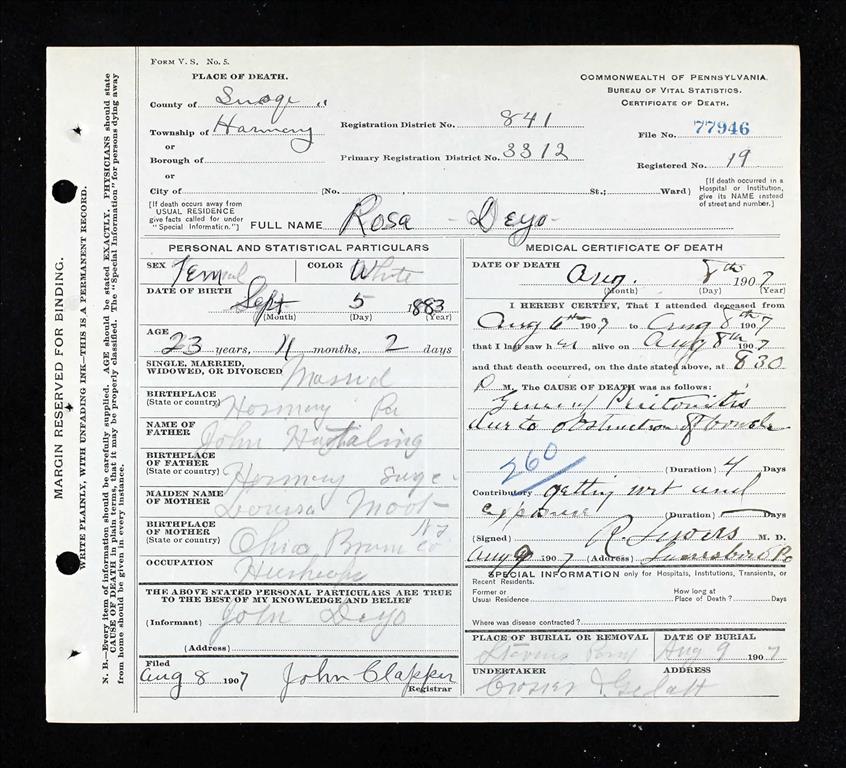 FORM V. S. No. 5.
PLACE OF DEATH.
County of Susqe
Township of Harmony
or
Borough of
or
City of
(No. St.; Ward)
Registration District No. 841
Primary Registration District No. 3312
COMMONWEALTH OF PENNSYLVANIA.
BUREAU OF VITAL STATISTICS.
CERTIFICATE OF DEATH.
File No. 77946
Registered No. 19
[If death occurs away from USUAL RESIDENCE give facts called for under "Special Information."]
[If death occurred in a Hospital or Institution, give its NAME instead of street and number.]
FULL NAME Rosa Deyo
PERSONAL AND STATISTICAL PARTICULARS
SEX Femal
COLOR White
DATE OF BIRTH
Sept 5 1883
(Month) (Day) (Year)
AGE
23 years, 11 months, 2 days
SINGLE, MARRIED,
WIDOWED, OR DIVORCED
BIRTHPLACE
(State or country) Pa
NAME OF
FATHER John
BIRTHPLACE
OF FATHER
(State or country)
MAIDEN NAME
OF MOTHER Louisa
BIRTHPLACE
OF MOTHER
(State or country) N Y
OCCUPATION
THE ABOVE STATED PERSONAL PARTICULARS ARE TRUE
TO THE BEST OF MY KNOWLEDGE AND BELIEF
(Informant) John Deyo
(Address)
Filed
Aug 8 1907 John Clapper
Registrar
MEDICAL CERTIFICATE OF DEATH
DATE OF DEATH
Aug. 8th 1907
(Month) (Day) (Year)
I HEREBY CERTIFY, That I attended deceased from
Aug 6th 1907 to Aug 8th 1907
that I last saw her alive on Aug 8th 1907
and that death occurred, on the date stated above, at 830
P M. The CAUSE OF DEATH was as follows:
General Peritonitis
due to obstruction of bowels
260
(Duration) 4 Days
Contributory getting wet and
exposure (Duration) Days
(Signed) M. D.
Aug 9 1907 (Address) Pa
SPECIAL INFORMATION only for Hospitals, Institutions, Transients, or
Recent Residents.
Former or
Usual Residence
How long at
Place of Death? Days
Where was disease contracted?
PLACE OF BURIAL OR REMOVAL
Stevens
DATE OF BURIAL
Aug 9 1907
UNDERTAKER
ADDRESS
MARGIN RESERVED FOR BINDING.
WRITE PLAINLY, WITH UNFADING INK—THIS IS A PERMANENT RECORD.
N. B.—Every item of information should be carefully supplied. AGE should be stated EXACTLY. PHYSICIANS should state
CAUSE OF DEATH in plain terms, that it may be properly classified. The "Special Information" for persons dying away
from home should be given in every instance.